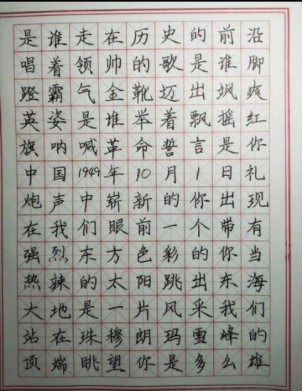 是谁走在历史的前沿
唱着领帅的歌是谁脚
蹬霸气金靴迈出飒爽
英姿是谁举着飘摇红
旗呐喊革命誓言是你
中国1949年10月1日礼
炮声中崭新的你出现
在我们眼前一个带有
强烈东方色彩的你当
热辣的太阳跳出东海
大地是一片风采我们
站在珠穆朗玛雪峰的
顶端眺望你是多么雄